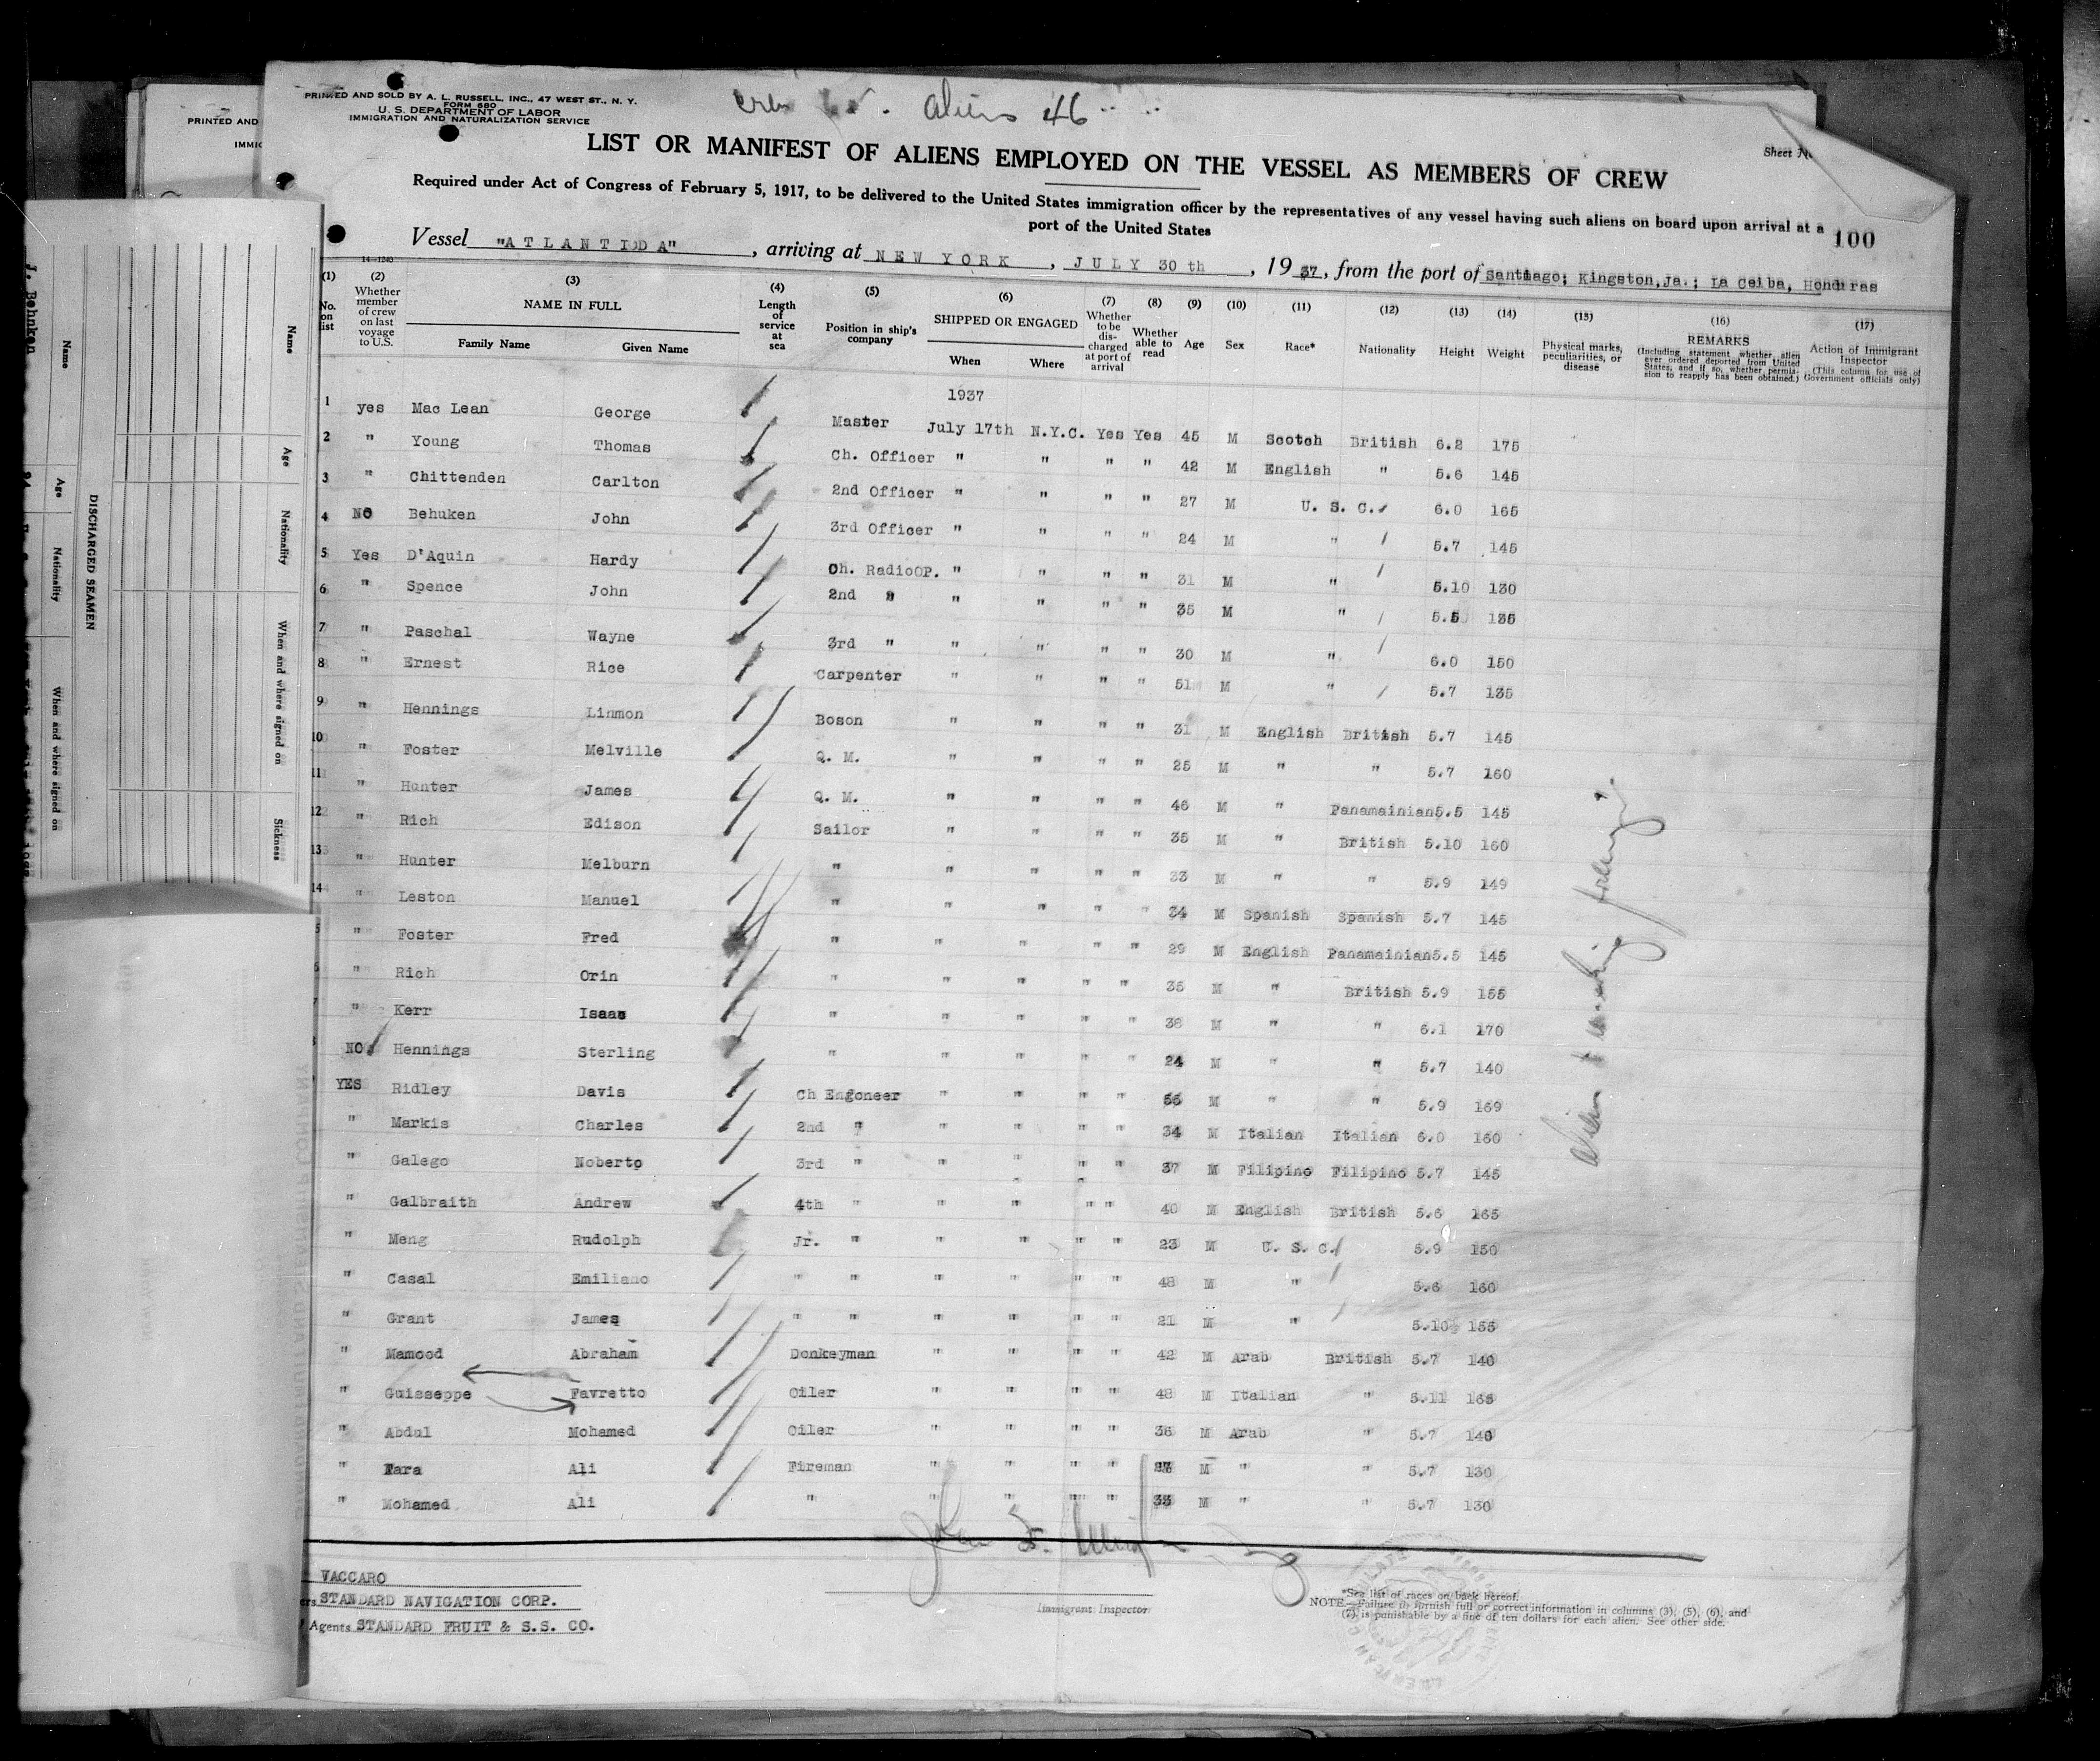 PRINTED AND SOLD BY A. L. RUSSELL, INC., 47 WEST ST., N. Y.
FORM 680
U. S. DEPARTMENT OF LABOR
IMMIGRATION AND NATURALIZATION SERVICE
PRINTED AND
IMMIG
Aliens 46
Sheet No
LIST OR MANIFEST OF ALIENS EMPLOYED ON THE VESSEL AS MEMBERS OF CREW
Required under Act of Congress of February 5, 1917, to be delivered to the United States immigration officer by the representatives of any vessel having such aliens on board upon arrival at a
port of the United States
100
Vessel "ATLANTIDA", arriving at NEW YORK, JULY 30 th, 1937, from the port of Santiago; Kingston, Ja.; La Ceiba, Honduras
14-1240
(1) (2) (3) (4) (5) (6) (7) (8) (9) (10) (11) (12) (13) (14) (15) (16) (17)
No. on list
Whether member of crew on last voyage to U.S.
NAME IN FULL
Family Name Given Name
Length of service at sea
Position in ship's company
SHIPPED OR ENGAGED
When Where
Whether to be discharged at port of arrival
Whether able to read
Age
Sex
Race*
Nationality
Height
Weight
Physical marks, peculiarities, or disease
REMARKS
(Including statement whether alien ever ordered deported from United States, and if so, whether permission to reapply has been obtained.)
Action of Immigrant Inspector
(This column for use of Government officials only)
1937
1 yes Mac Lean George Master July 17th N.Y.C. Yes Yes 45 M Scotch British 6.2 175
2 " Young Thomas Ch. Officer " " " " 42 M English " 5.6 145
3 " Chittenden Carlton 2nd Officer " " " " 27 M U. S. C. 6.0 165
4 NO Behuken John 3rd Officer " " " " 24 M " 5.7 145
5 Yes D'Aquin Hardy Ch. RadioOP. " " " " 31 M " 5.10 130
6 " Spence John 2nd " " " " " 35 M " 5.5 135
7 " Paschal Wayne 3rd " " " " " 30 M " 6.0 150
8 " Ernest Rice Carpenter " " " " 51 M " 5.7 135
9 " Hennings Linmon Boson " " " " 31 M English British 5.7 145
10 " Foster Melville Q. M. " " " " 25 M " " 5.7 160
11 " Hunter James Q. M. " " " " 46 M " Panamainian 5.5 145
12 " Rich Edison Sailor " " " " 35 M " British 5.10 160
13 " Hunter Melburn " " " " " 33 M " " 5.9 149
14 " Leston Manuel " " " " " 34 M Spanish Spanish 5.7 145
5 " Foster Fred " " " " " 29 M English Panamainian 5.5 145
6 " Rich Orin " " " " " 35 M " British 5.9 155
7 " Kerr Isaac " " " " " 38 M " " 6.1 170
NO Hennings Sterling " " " " " 24 M " " 5.7 140
YES Ridley Davis Ch Engoneer " " " " 55 M " " 5.9 169
" Markis Charles 2nd " " " " " 34 M Italian Italian 6.0 160
" Galego Noberto 3rd " " " " " 37 M Filipino Filipino 5.7 145
" Galbraith Andrew 4th " " " " " 40 M English British 5.6 165
" Meng Rudolph Jr. " " " " " 23 M U. S. C. 5.9 150
" Casal Emiliano " " " " " " 48 M " 5.6 160
" Grant James " " " " " " 21 M " 5.10 155
" Mamood Abraham Donkeyman " " " " 42 M Arab British 5.7 140
" Guisseppe Favretto Oiler " " " " 48 M Italian " 5.11 165
" Abdul Mohamed Oiler " " " " 36 M Arab " 5.7 140
" Fara Ali Fireman " " " " M " " 5.7 130
" Mohamed Ali " " " " " 33 M " " 5.7 130
VACCARO
STANDARD NAVIGATION CORP.
Agents STANDARD FRUIT & S.S. CO.
Immigrant Inspector
*See list of races on back hereof.
NOTE.—Failure to furnish full or correct information in columns (3), (5), (6), and
(7) is punishable by a fine of ten dollars for each alien. See other side.
DISCHARGED SEAMEN
Name Age Nationality When and where signed on
Name Age Nationality When and where signed on Sickness
J. Behnken